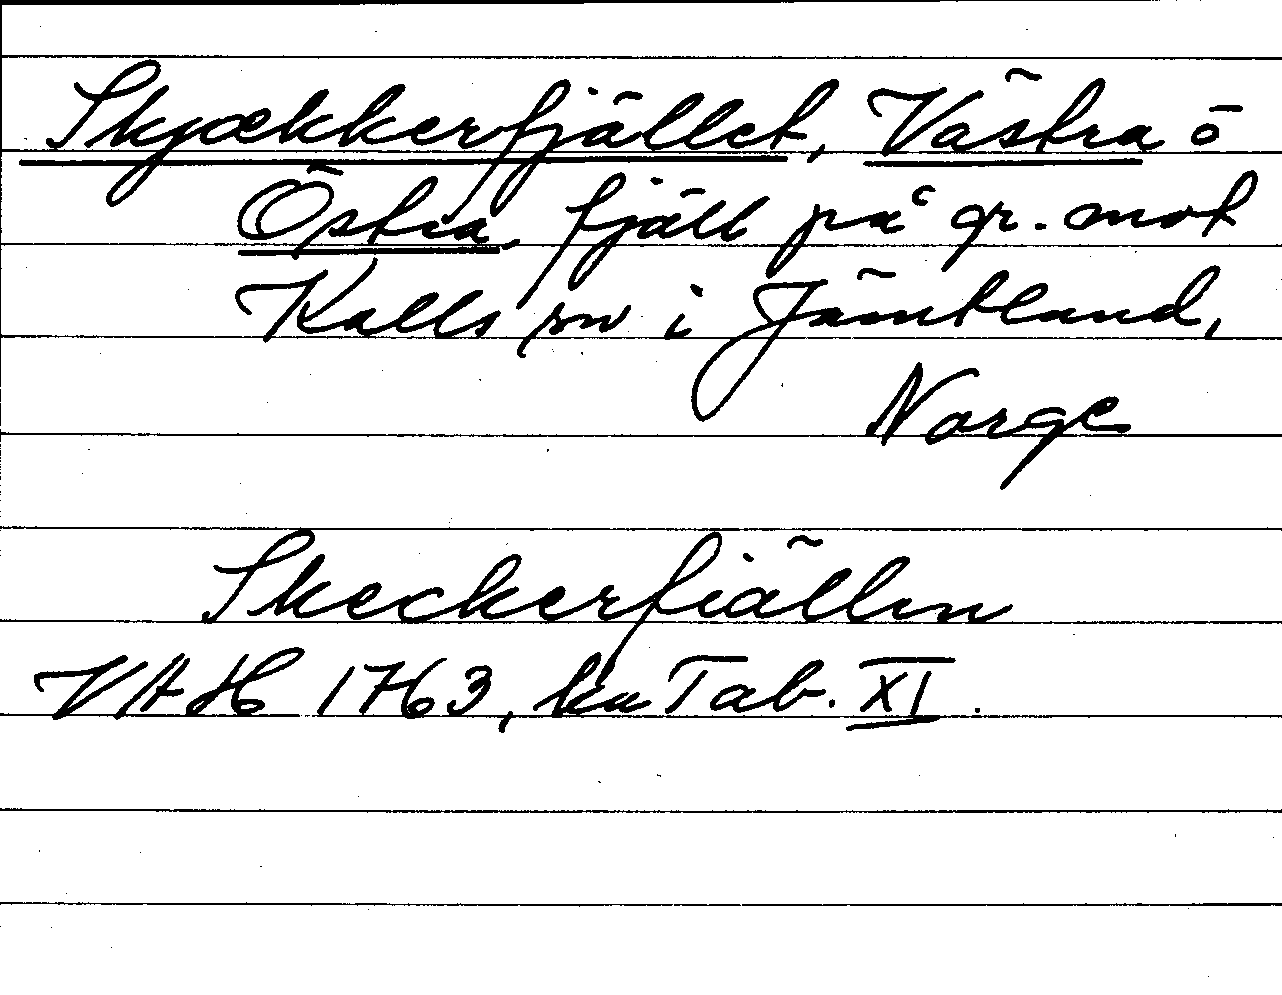 Skjækkerfjället, Västra o
Östra, fjäll på gr. mot
Kalls sn i Jämtland,
Norge
Skeckerfiällen
VAH 1763, ka Tab. XI.